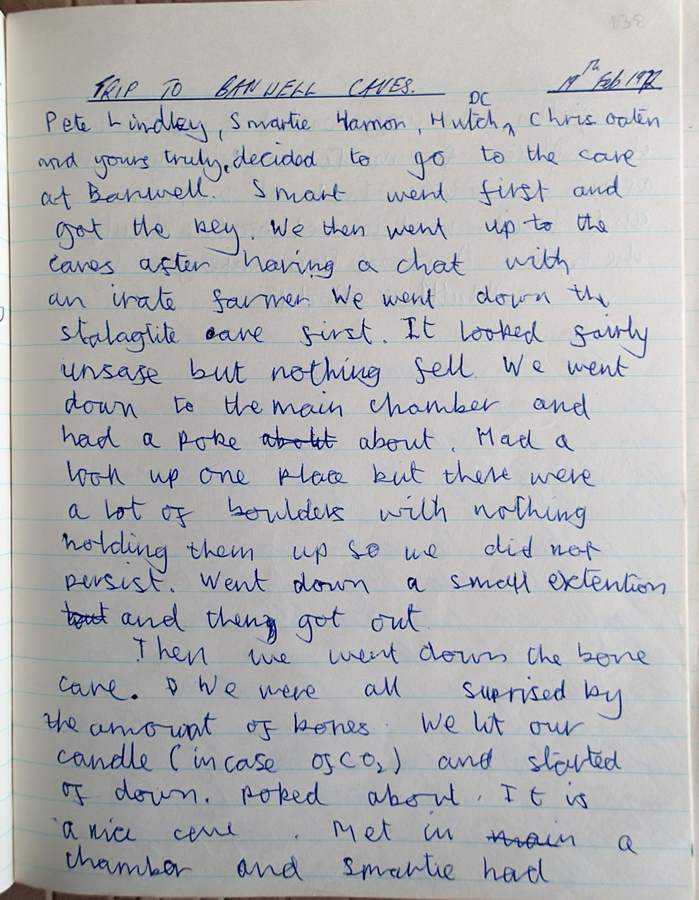 TRIP TO BANWELL CAVES. 19TH Feb 1972
Pete Lindley, Smartie Hamon, Hutch, DC Chris Oaten
and yours truly, decided to go to the cave
at Banwell. Smart went first and
got the key. We then went up to the
caves after having a chat with
an irate farmer. We went down the
stalaglite cave first. It looked fairly
unsafe but nothing fell. We went
down to the main chamber and
had a poke about about. Had a
look up one place but there were
a lot of boulders with nothing
holding them up so we did not
persist. Went down a small extention
but and then got out.
Then we went down the bone
cave. We were all suprised by
the amount of bones. We lit our
candle (incase of CO2) and started
of down. Poked about. It is
a nice cave. Met in main a
chamber and Smartie had